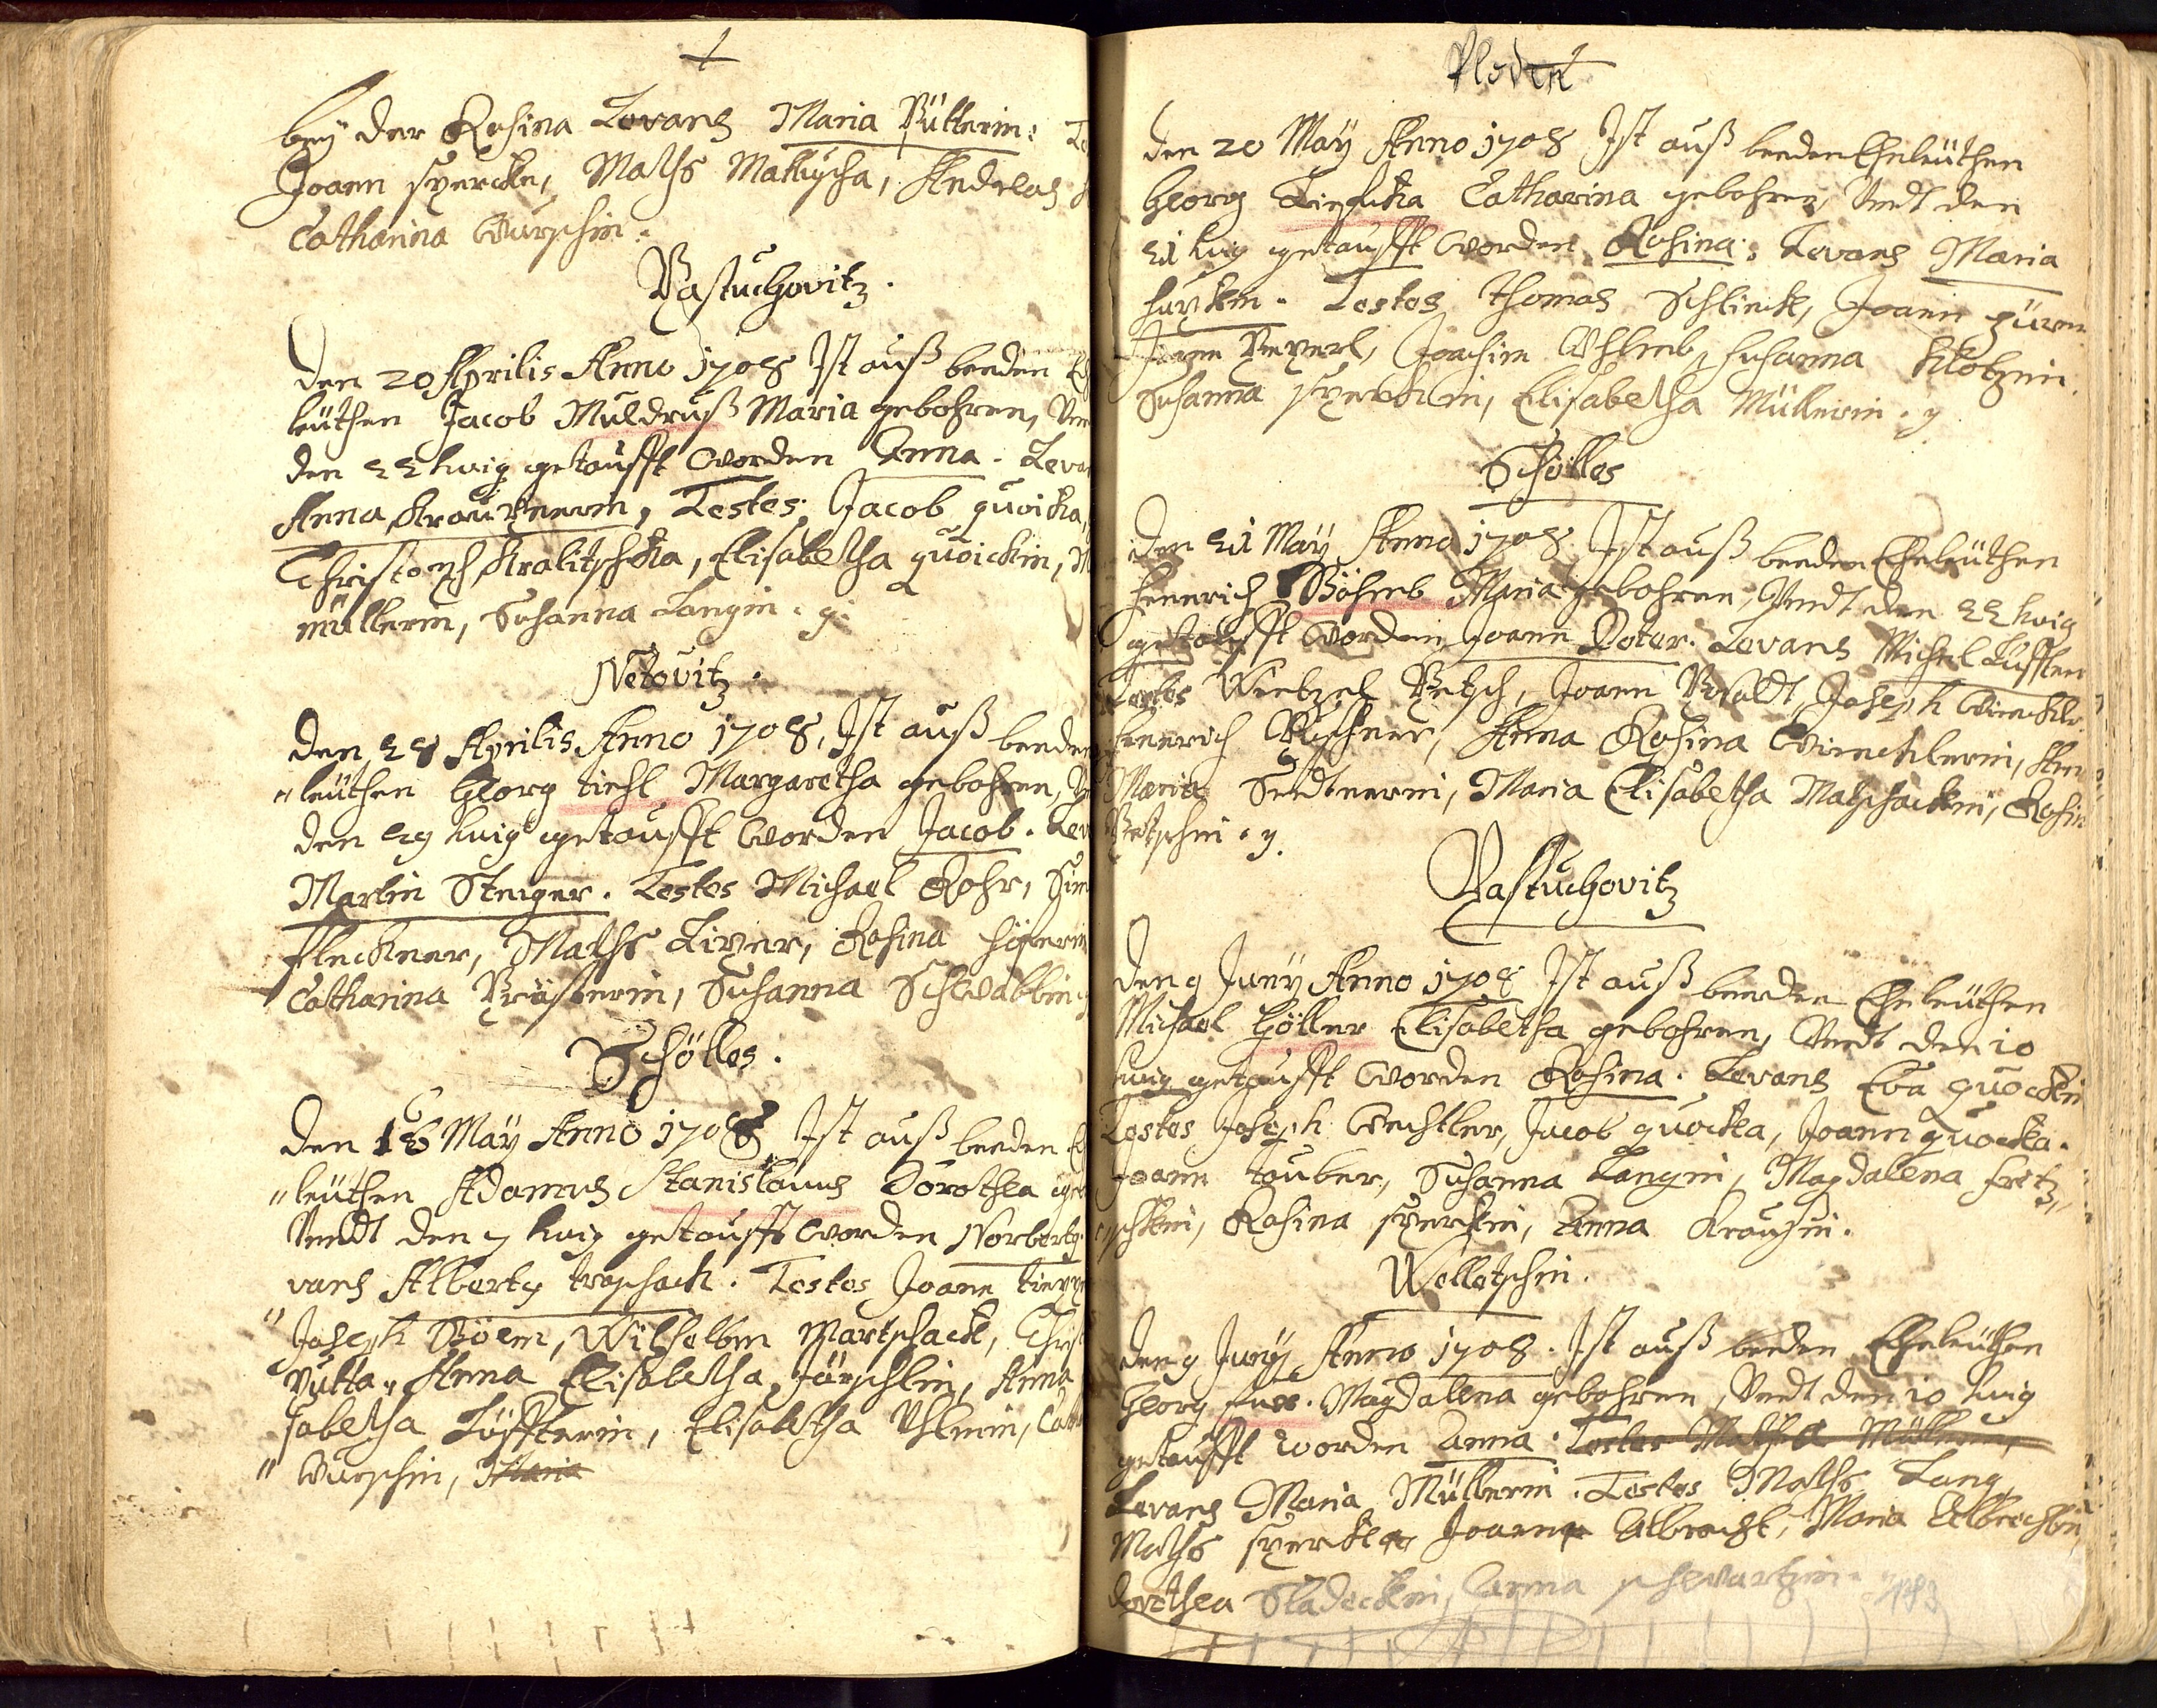 bey der Rosina Levans Maria Püttlerin:
Joann sperckl, Maths Mattuscha, Andreas
Catharina Wurschin.
Pastuchovitz.
den 20 Aprilis Anno 1708 Ist auß beeden
leüthen Jacob Muldruß Maria gebohren,
den 22 huig getaufft worden Anna. Leva
Anna Krauznerin, Testes: Jacob quoicka,
Christoph Kralitschka, Elisabetha quoickin,
müllerin, Susanna Langin. g.
Netovitz.
den 28 Aprilis Anno 1708, Ist auß beeden
"leüthen Georg tichl Margaretha gebohren,
den 29 huig getaufft worden Jacob. Lev
Martin Steiger. Testes Michael Rohr, Sim
Fleckner, Maths Liver, Rosina
Catharina Pröslerin, Susanna Schwabbin
Schölles.
den 16 May Anno 1708 Ist auß beeden
"leüthen Adamus Stanislauus Dorothea
Vndt den 7 huig getaufft worden Norbertg.
vans Alberty tropschack. Testes Joann
"Joseph Böem, Wilhelbm Martschack, Christ
Putta, Anna Elisabetha Järschlin, Anna
sabetha Löfflerin, Elisabetha Uhlmin,
" Wurschin, Maria
Pladen
den 20 May Anno 1708 Ist auß beeden Eheleüthen
Georg Liepuka Catharina gebohren, Vndt den
21 huig getaufft worden Rosina: Levans Maria
Testes Thomas Schlinck, Joann
Susanna Klotzin.
Susanna sperckin, Elisabetha Müllerin. g
Schölles
den 21 May Anno 1708, Ist auß beeden Eheleüthen
Henrich Böhmb Maria gebohren, Vndt den 22 huig
getaufft worden, Joann Peter. Levans Michel Löffler
Testes Wentzel Petsch, Joann Joseph Winckler
Henrich Püschner, Anna Rosina Wincklerin, Ann
Maria Sendtnerin, Maria Elisabetha Matschackin, Rosin
Petschin. g.
Pastuchovitz
den 9 Juny Anno 1708 Ist auß beeden Eheleüthen
Michael Göller Elisabetha gebohren, Vndt den 10
huig getaufft worden Rosina. Levans Eva quockin
Testes Joseph Wechtler, Jacob quocka, Joann quocka.
Joann tauber, Susanna Langin, Magdalena fritz,
schkin, Rosina sperckin, Anna Krausin.
Wolletschin.
den 9 Juny Anno 1708. Ist auß beeden Eheleüthen
Georg fux. Magdalena gebohren, Vndt den 10 huig
getaufft worden Anna. Testes Mathea Müllerin,
Levans Maria Müllerin. Testes Maths Lang,
Maths sperckl Joann Albrecht, Maria Albrechtin,
dorothea Sladeckin, Anna schwartzin. 183